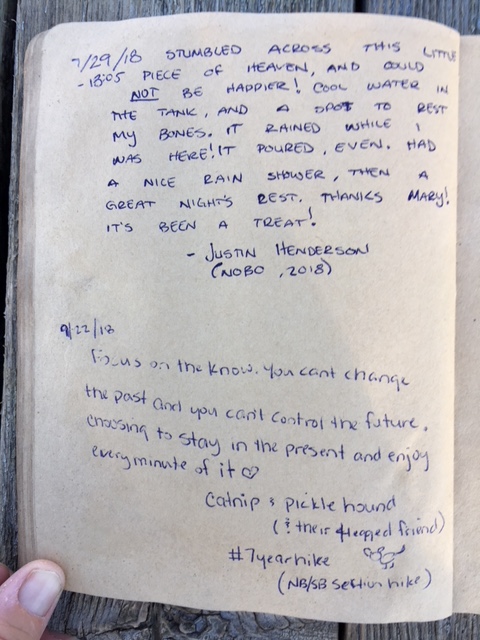 7/29/18 STUMBLED ACROSS THIS LITTLE
- 18:05 PIECE OF HEAVEN, AND COULD
NOT BE HAPPIER! COOL WATER IN
THE TANK, AND A SPOT TO REST
MY BONES. IT RAINED WHILE I
WAS HERE! IT POURED, EVEN. HAD
A NICE RAIN SHOWER, THEN A
GREAT NIGHT'S REST. THANKS MARY!
IT'S BEEN A TREAT!
- JUSTIN HENDERSON
(NOBO, 2018)
9/22/18
Focus on the know. You cant change
the past and you can't control the future.
choosing to stay in the present and enjoy
every minute of it ♡
Catnip & pickle hound
(& their 4legged friend)
#7yearhike
(NB/SB section hike)